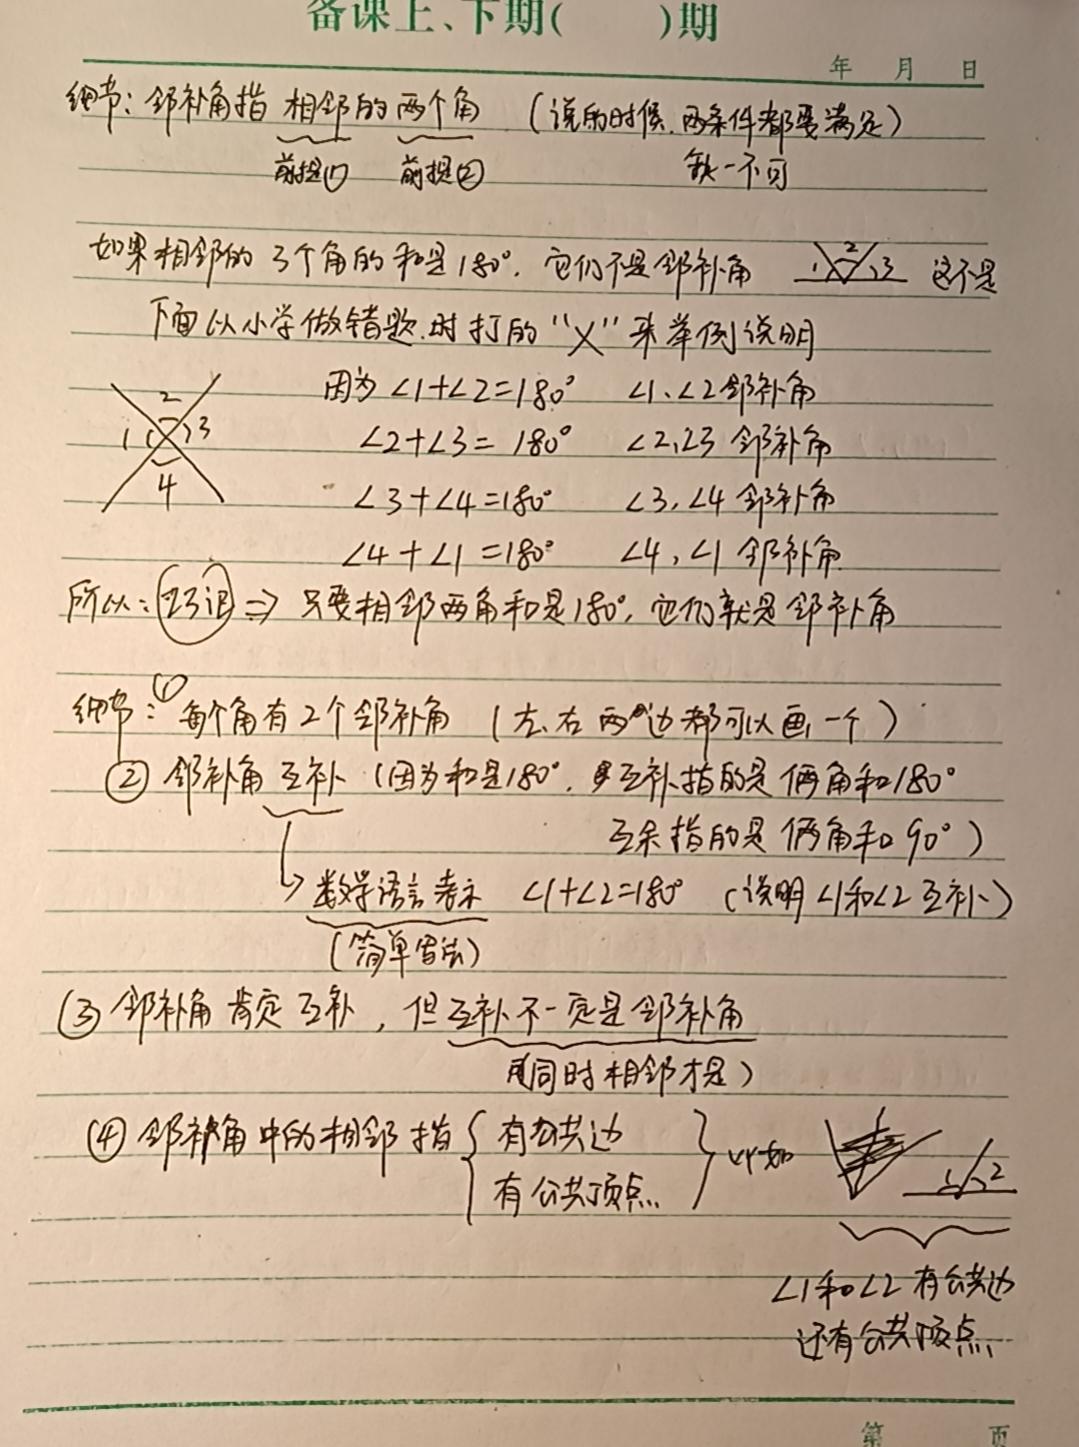 备课上、下期(    )期
年 月 日
细节：邻补角指 相邻的 两个角 （说的时候，两条件都要满足）
前提① 前提② 缺一不可
如果相邻的 3个角的和是180°，它们不是邻补角 1 2 3 这不是
下面以小学做错题时打的“X”来举例说明
因为∠1+∠2=180° ∠1、∠2邻补角
2
1 3 ∠2+∠3=180° ∠2,∠3 邻补角
4 ∠3+∠4=180° ∠3,∠4 邻补角
∠4+∠1=180° ∠4,∠1 邻补角
所以：巧记 ⇒ 只要相邻两角和是180°，它们就是邻补角
细节：① 每个角有2个邻补角（左、右两边都可以画一个）
② 邻补角互补（因为和是180°，互补指的是俩角和180°
互余指的是俩角和90°）
→ 数学语言表示 ∠1+∠2=180° （说明∠1和∠2互补）
（简单写法）
③ 邻补角肯定互补，但互补不一定是邻补角
同时相邻才是）
④ 邻补角中的相邻指 { 有公共边
有公共顶点 } 比如 1 2
∠1和∠2有公共边
还有公共顶点
第 页